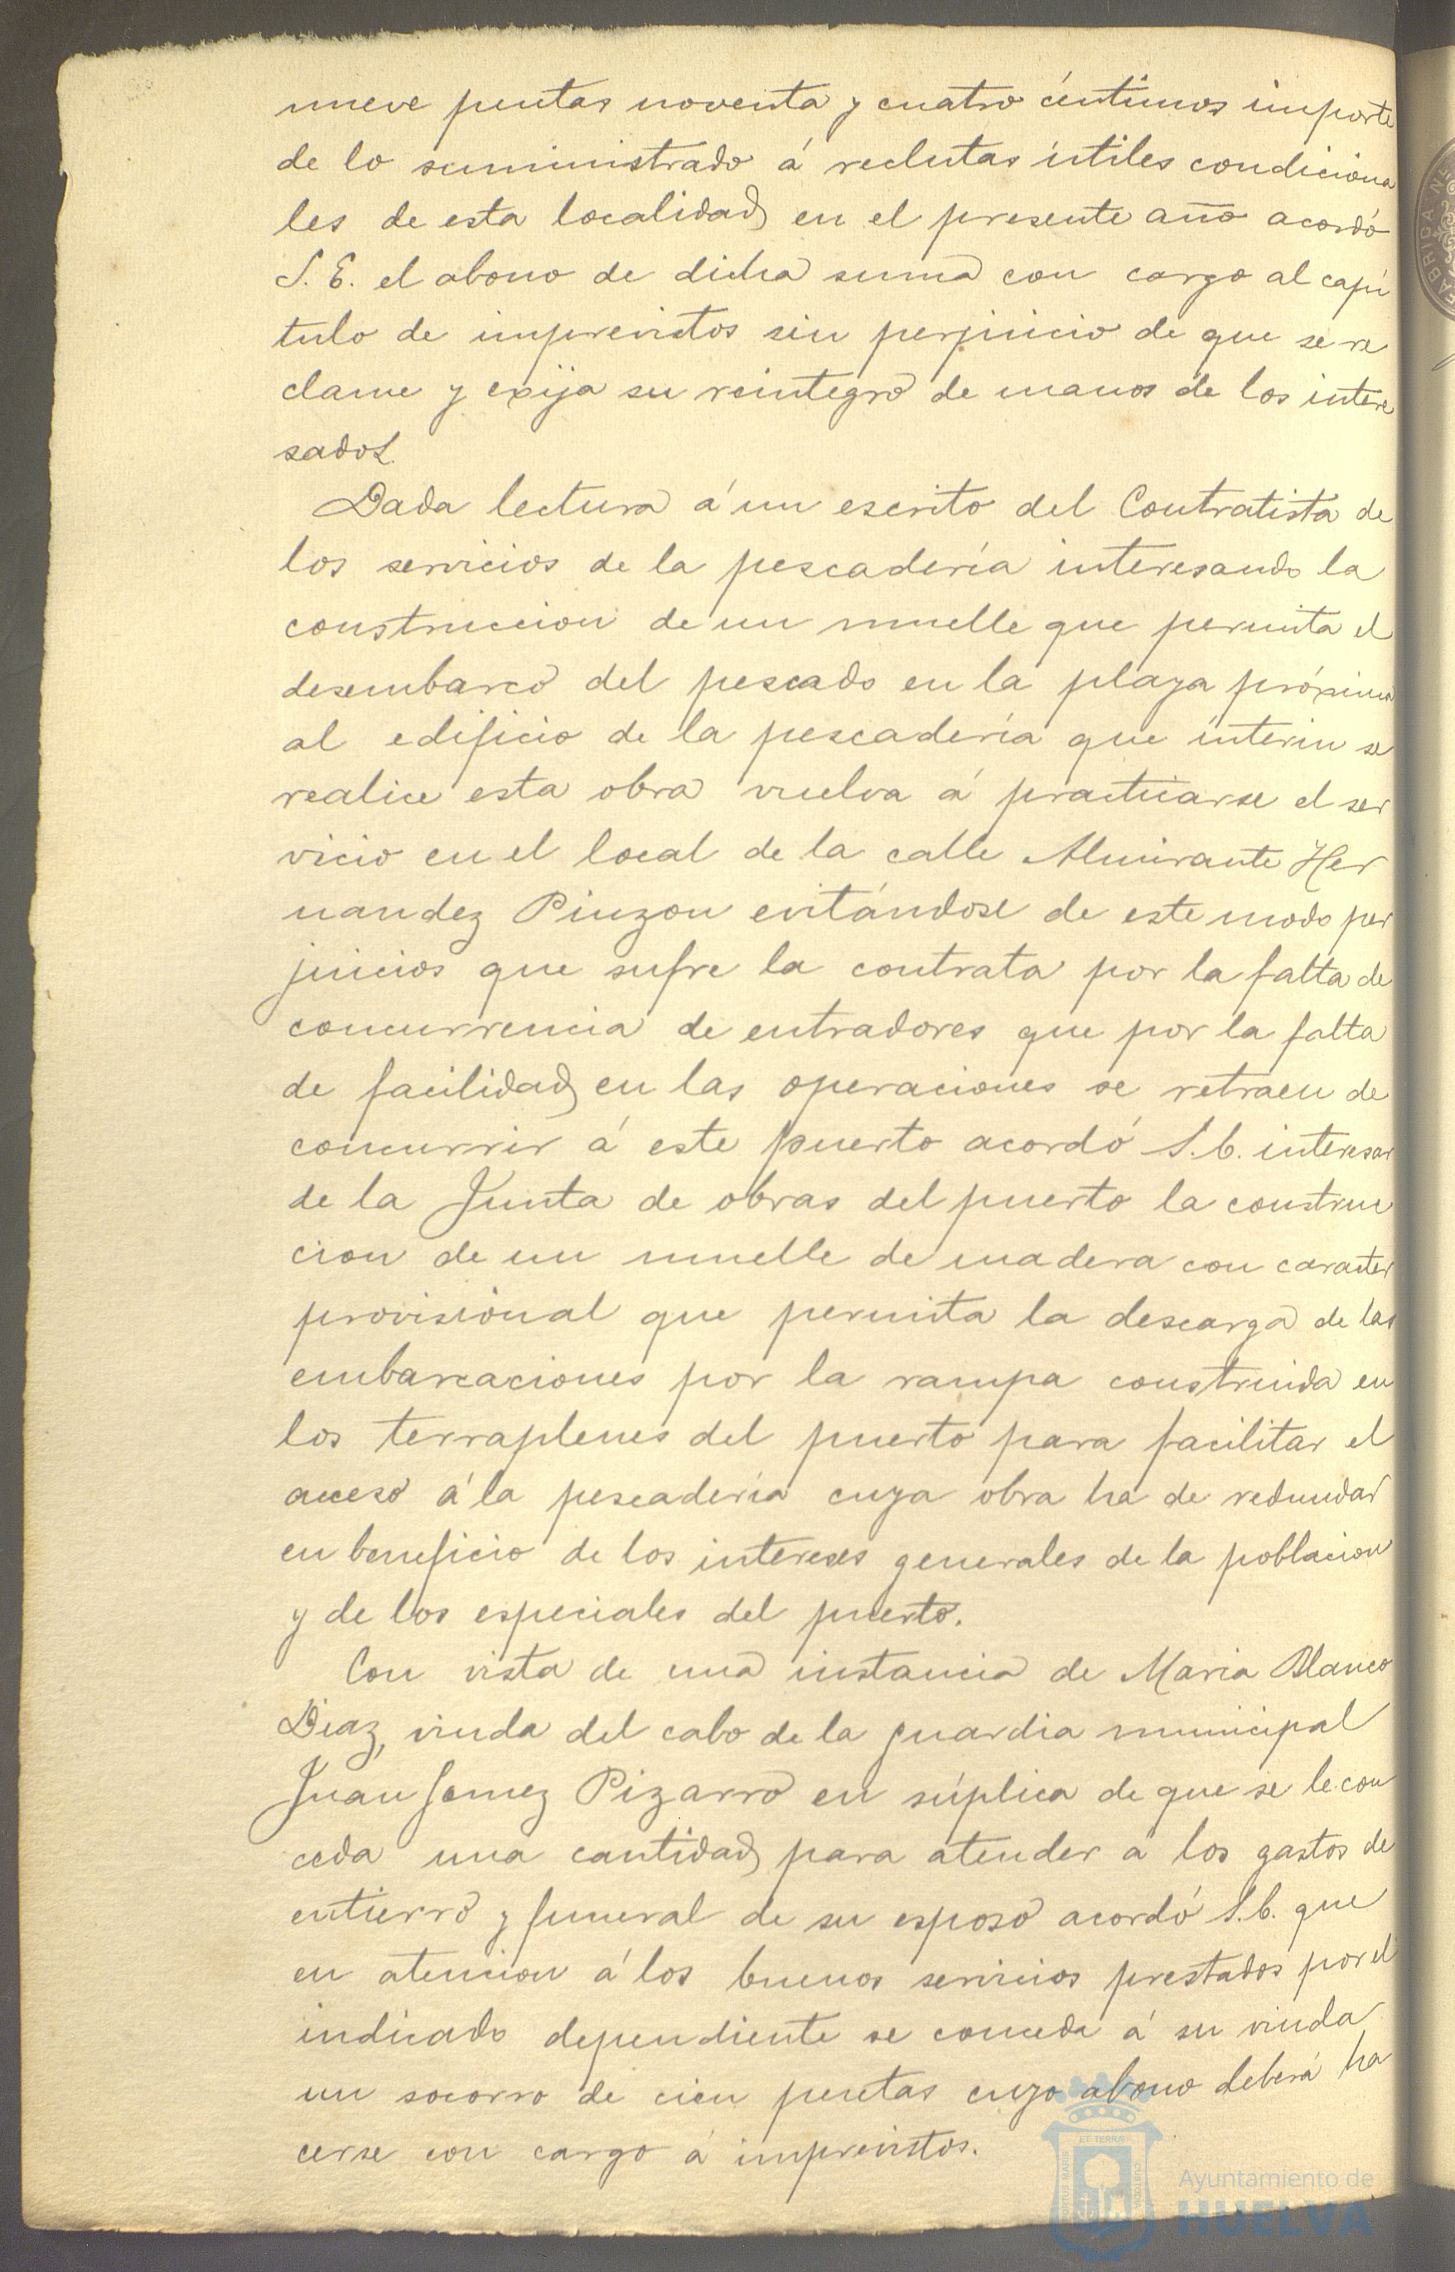 nueve pesetas noventa y cuatro céntimos importe
de lo suministrado á reclutas útiles condiciona
les de esta localidad en el presente año acordó
S. E. el abono de dicha suma con cargo al capí
tulo de imprevistos sin perjuicio de que se re
clame y exija su reintegro de manos de los intere
sados.
Dada lectura á un escrito del Contratista de
los servicios de la pescadería interesando la
construccion de un muelle que permita el
desembarco del pescado en la playa próxima
al edificio de la pescadería que interin se
realice esta obra vuelva á practicarse el ser
vicio en el local de la calle Almirante Her
nandez Pinzon evitándose de este modo per
juicios que sufre la contrata por la falta de
concurrencia de entradores que por la falta
de facilidad en las operaciones se retraen de
concurrir á este puerto acordó S. E. interesar
de la Junta de obras del puerto la construc
cion de un muelle de madera con caracter
provisional que permita la descarga de las
embarcaciones por la rampa construida en
los terraplenes del puerto para facilitar el
acceso á la pescadería cuya obra ha de redundar
en beneficio de los intereses generales de la poblacion
y de los especiales del puerto.
Con vista de una instancia de Maria Blanco
Diaz, viuda del cabo de la guardia municipal
Juan Gomez Pizarro en súplica de que se le con
ceda una cantidad para atender á los gastos de
entierro y funeral de su esposo acordó S. E. que
en atencion á los buenos servicios prestados por el
indicado dependiente se conceda á su viuda
un socorro de cien pesetas cuyo abono deberá ha
cerse con cargo á imprevistos.
Ayuntamiento de
HUELVA